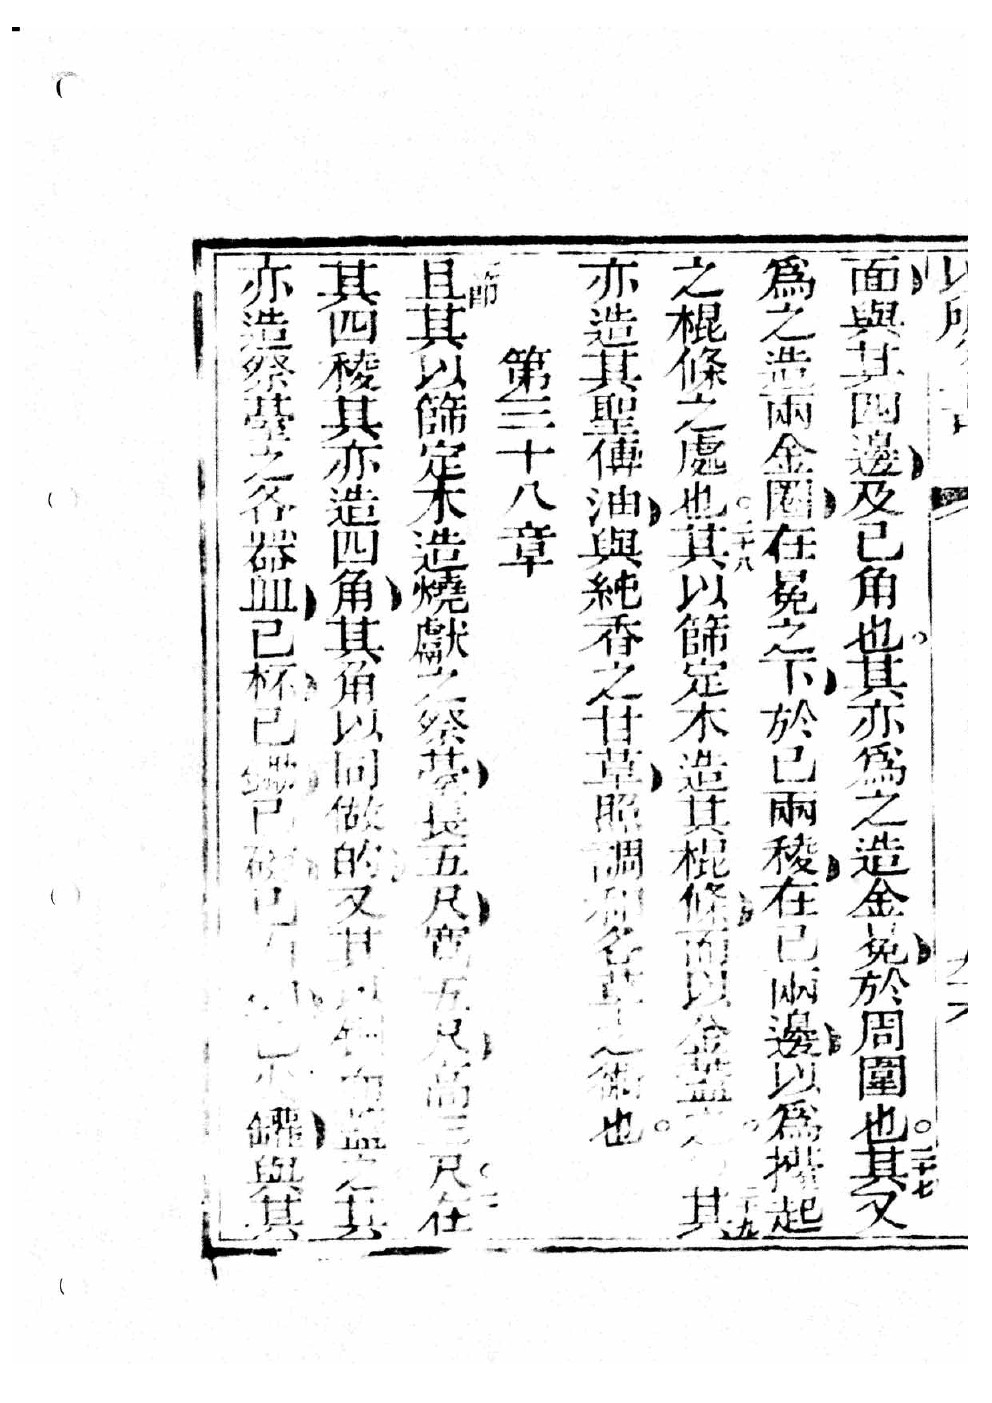 面與其四邊及已角也。其亦爲之造金冕於周圍也。二十七其又
爲之造兩金圈在冕之下於已兩稜在已兩邊以爲擡起
之棍條之處也。二十八其以篩定木造其棍條而以金蓋之。二十九其
亦造其聖傅油與純香之甘草照調和名草之術也。
第三十八章
節
且其以篩定木造燒獻之祭𦤺長五尺寬五尺高三尺在
其四稜其亦造四角其角以同做的又其以銅而蓋之其
亦造祭𦤺之各器皿已杯已鋤已 已 已 罐與其